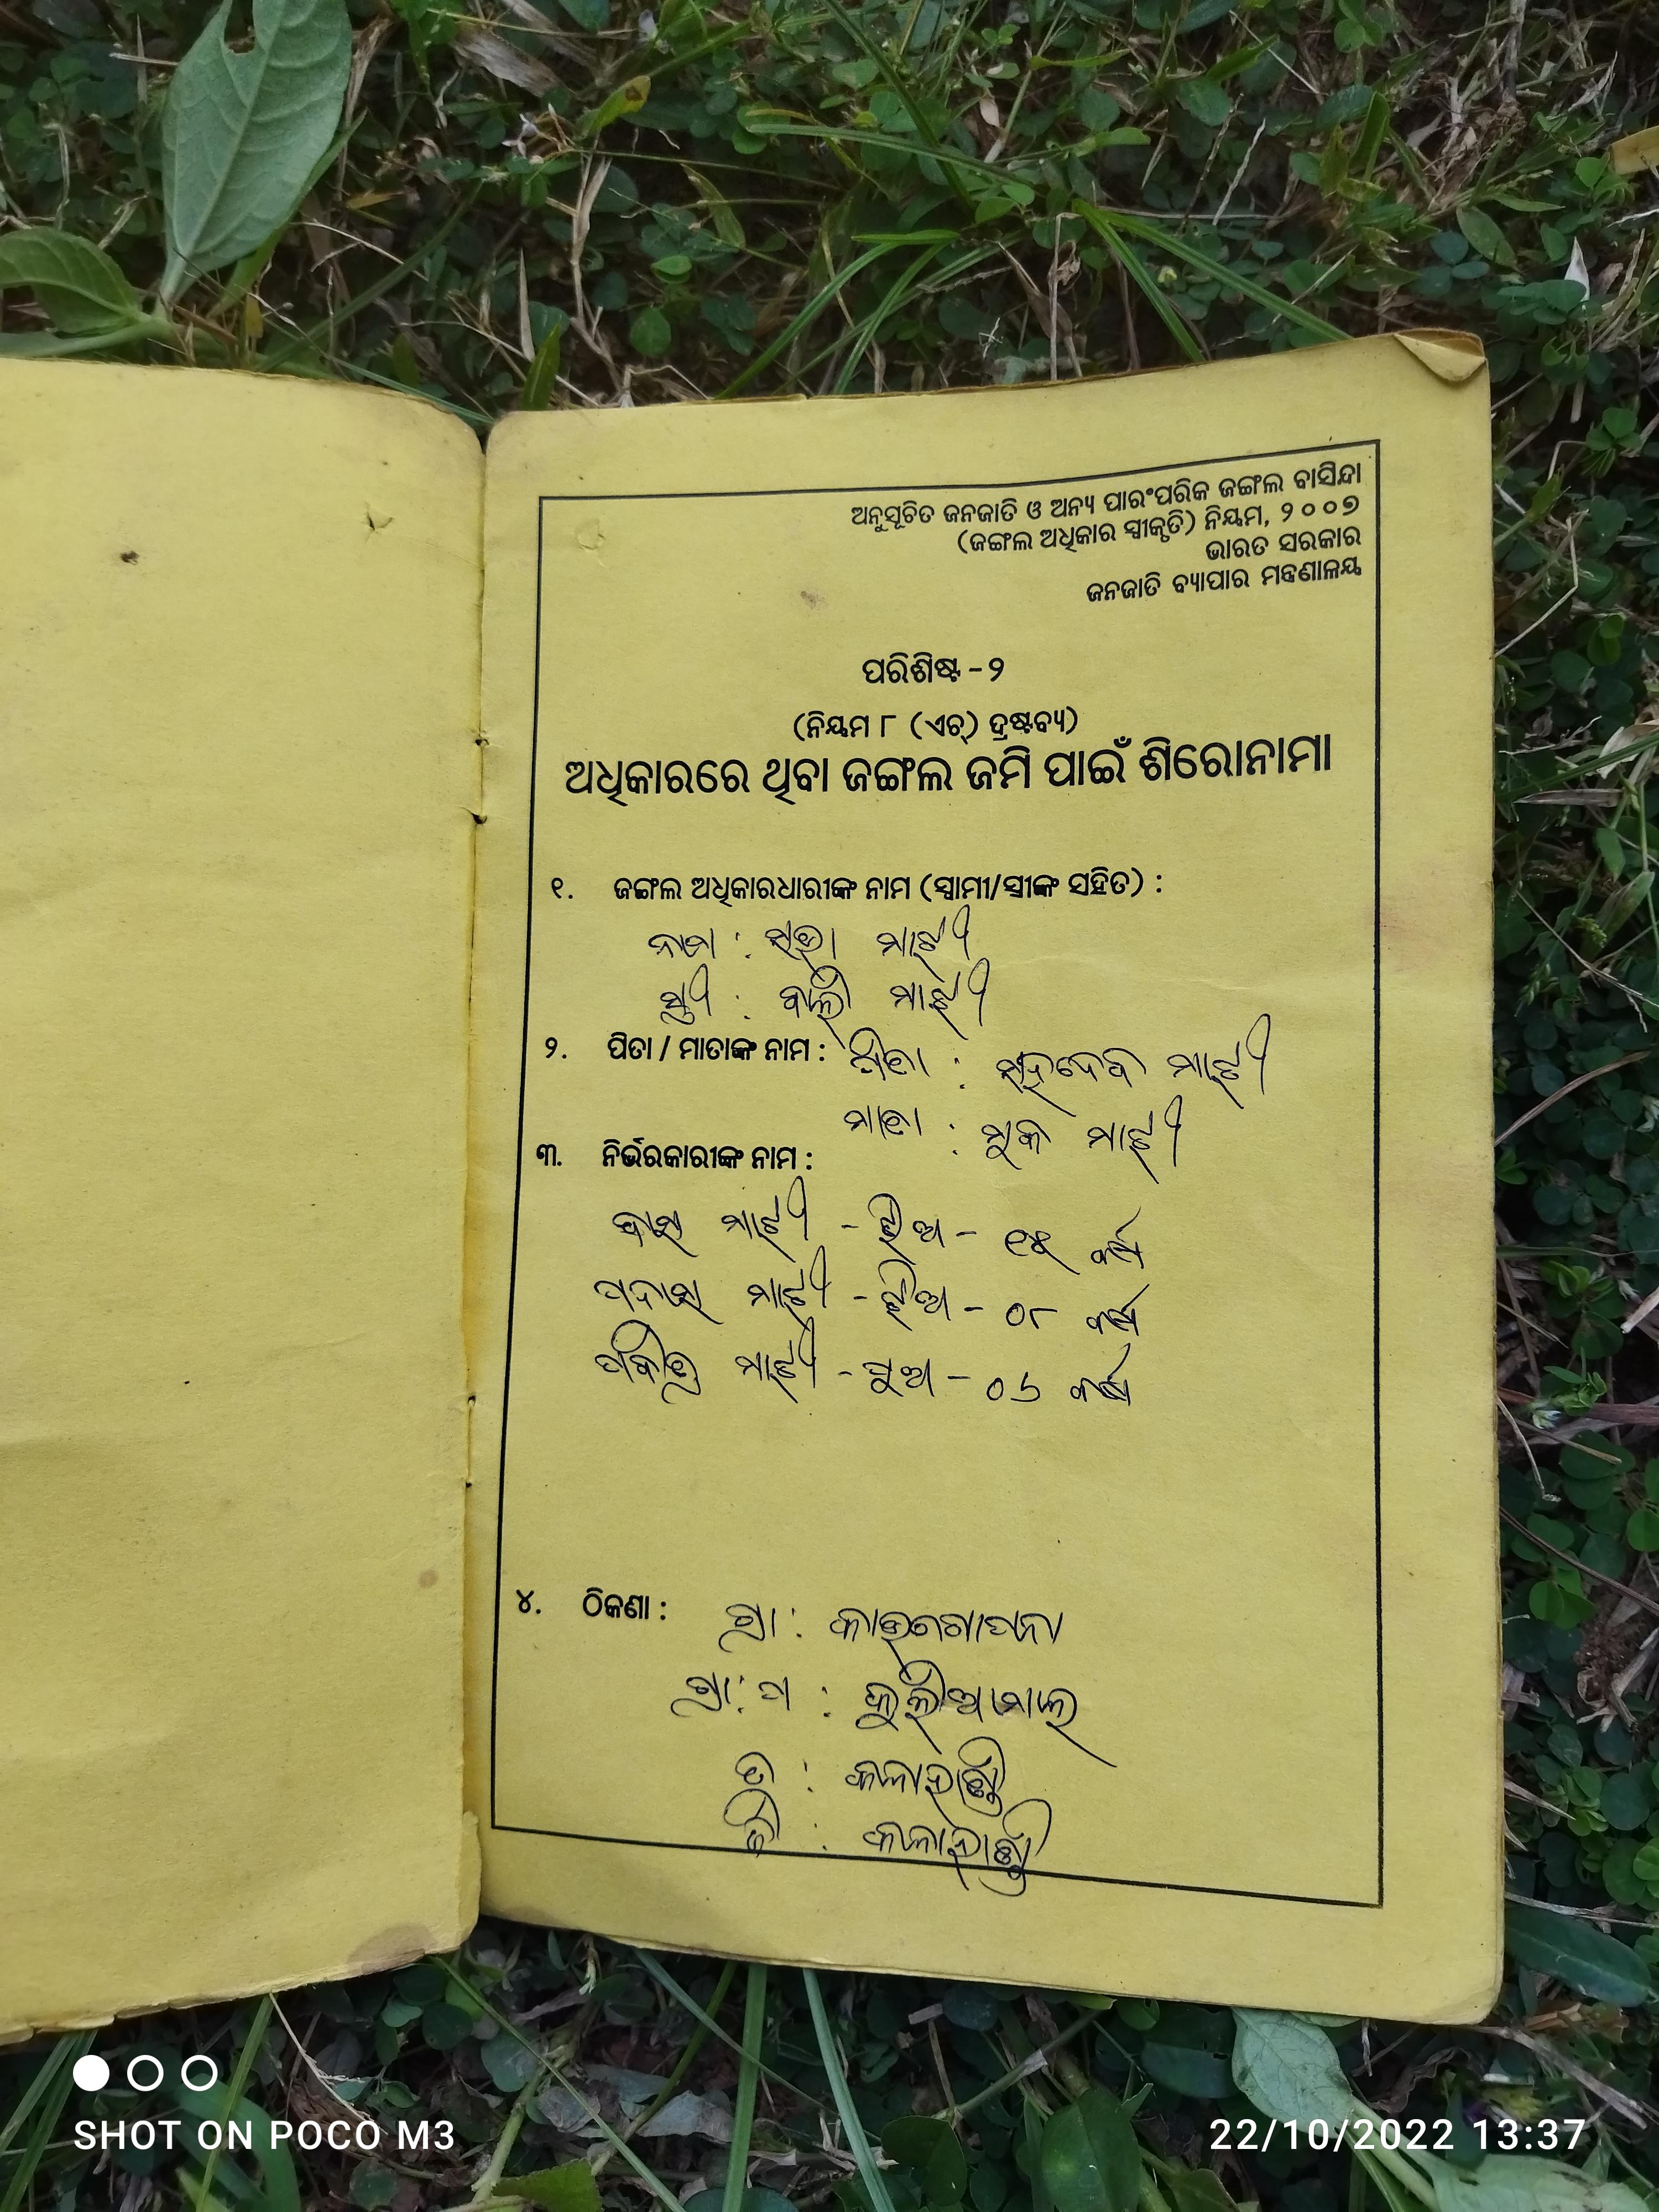 ଅନୁସୂଚିତ ଜନଜାତି ଓ ଅନ୍ୟ ପାରଂପରିକ ଜଙ୍ଗଲ ବାସିନ୍ଦା
(ଜଙ୍ଗଲ ଅଧିକାର ସ୍ୱୀକୃତି) ନିୟମ, ୨୦୦୭
ଭାରତ ସରକାର
ଜନଜାତି ବ୍ୟାପାର ମନ୍ତ୍ରଣାଳୟ
ପରିଶିଷ୍ଟ - ୨
(ନିୟମ ୮ (ଏଚ୍) ଦ୍ରଷ୍ଟବ୍ୟ)
ଅଧିକାରରେ ଥିବା ଜଙ୍ଗଲ ଜମି ପାଇଁ ଶିରୋନାମା
୧. ଜଙ୍ଗଲ ଅଧିକାରଧାରୀଙ୍କ ନାମ (ସ୍ୱାମୀ/ସ୍ତ୍ରୀଙ୍କ ସହିତ) :
ନାମ : ମାଝୀ
ସ୍ତ୍ରୀ : ମାଝୀ
୨. ପିତା / ମାତାଙ୍କ ନାମ : ପିତା : ସହଦେବ ମାଝୀ
ମାତା : ମାଝୀ
୩. ନିର୍ଭରକାରୀଙ୍କ ନାମ :
ମାଝୀ - ଝିଅ - ୧୫ ବର୍ଷ
ମାଝୀ - ଝିଅ - ୦୮ ବର୍ଷ
ମାଝୀ - ପୁଅ - ୦୬ ବର୍ଷ
୪. ଠିକଣା : ଗ୍ରା :
ଗ୍ରା: ପ :
ତ : କଳାହାଣ୍ଡି
ଜି : କଳାହାଣ୍ଡି
SHOT ON POCO M3
22/10/2022 13:37